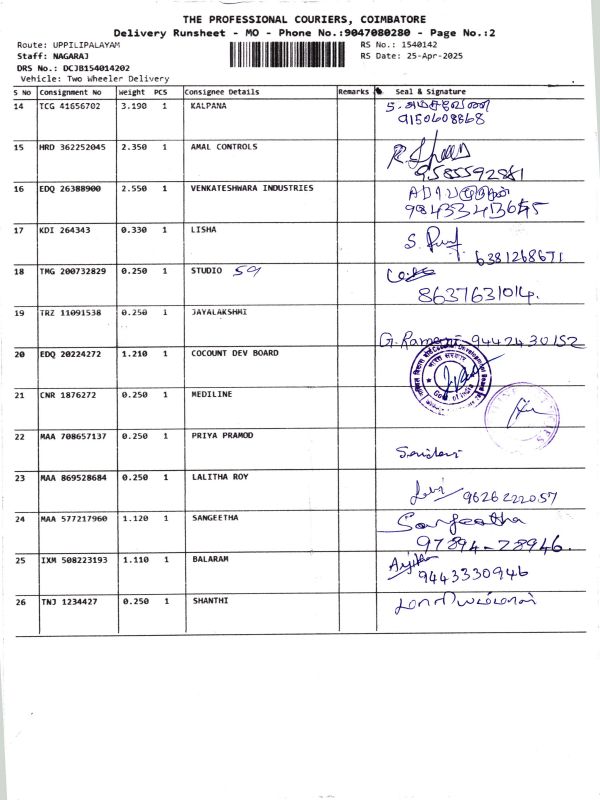 THE PROFESSIONAL COURIERS, COIMBATORE
Delivery Runsheet - MO - Phone No.:9047080280 - Page No.:2
Route: UPPILIPALAYAM RS No.: 1540142
Staff: NAGARAJ RS Date: 25-Apr-2025
DRS No.: DCJB154014202
Vehicle: Two Wheeler Delivery
S No Consignment No Weight PCS Consignee Details Remarks Seal & Signature
14 TCG 41656702 3.190 1 KALPANA
9150608868
15 HRD 362252045 2.350 1 AMAL CONTROLS
9585592881
16 EDQ 26388900 2.550 1 VENKATESHWARA INDUSTRIES
17 KDI 264343 0.330 1 LISHA
6381268671
18 TMG 200732829 0.250 1 STUDIO 59
8637631014.
19 TRZ 11091538 0.250 1 JAYALAKSHMI
G. Ramani - 9442430152
20 EDQ 20224272 1.210 1 COCOUNT DEV BOARD
भारत सरकार
Govt. of India
21 CNR 1876272 0.250 1 MEDILINE
22 MAA 708657137 0.250 1 PRIYA PRAMOD
23 MAA 869528684 0.250 1 LALITHA ROY
9626222057
24 MAA 577217960 1.120 1 SANGEETHA Sangeetha
97894-78946.
25 IXM 508223193 1.110 1 BALARAM
9443330946
26 TNJ 1234427 0.250 1 SHANTHI